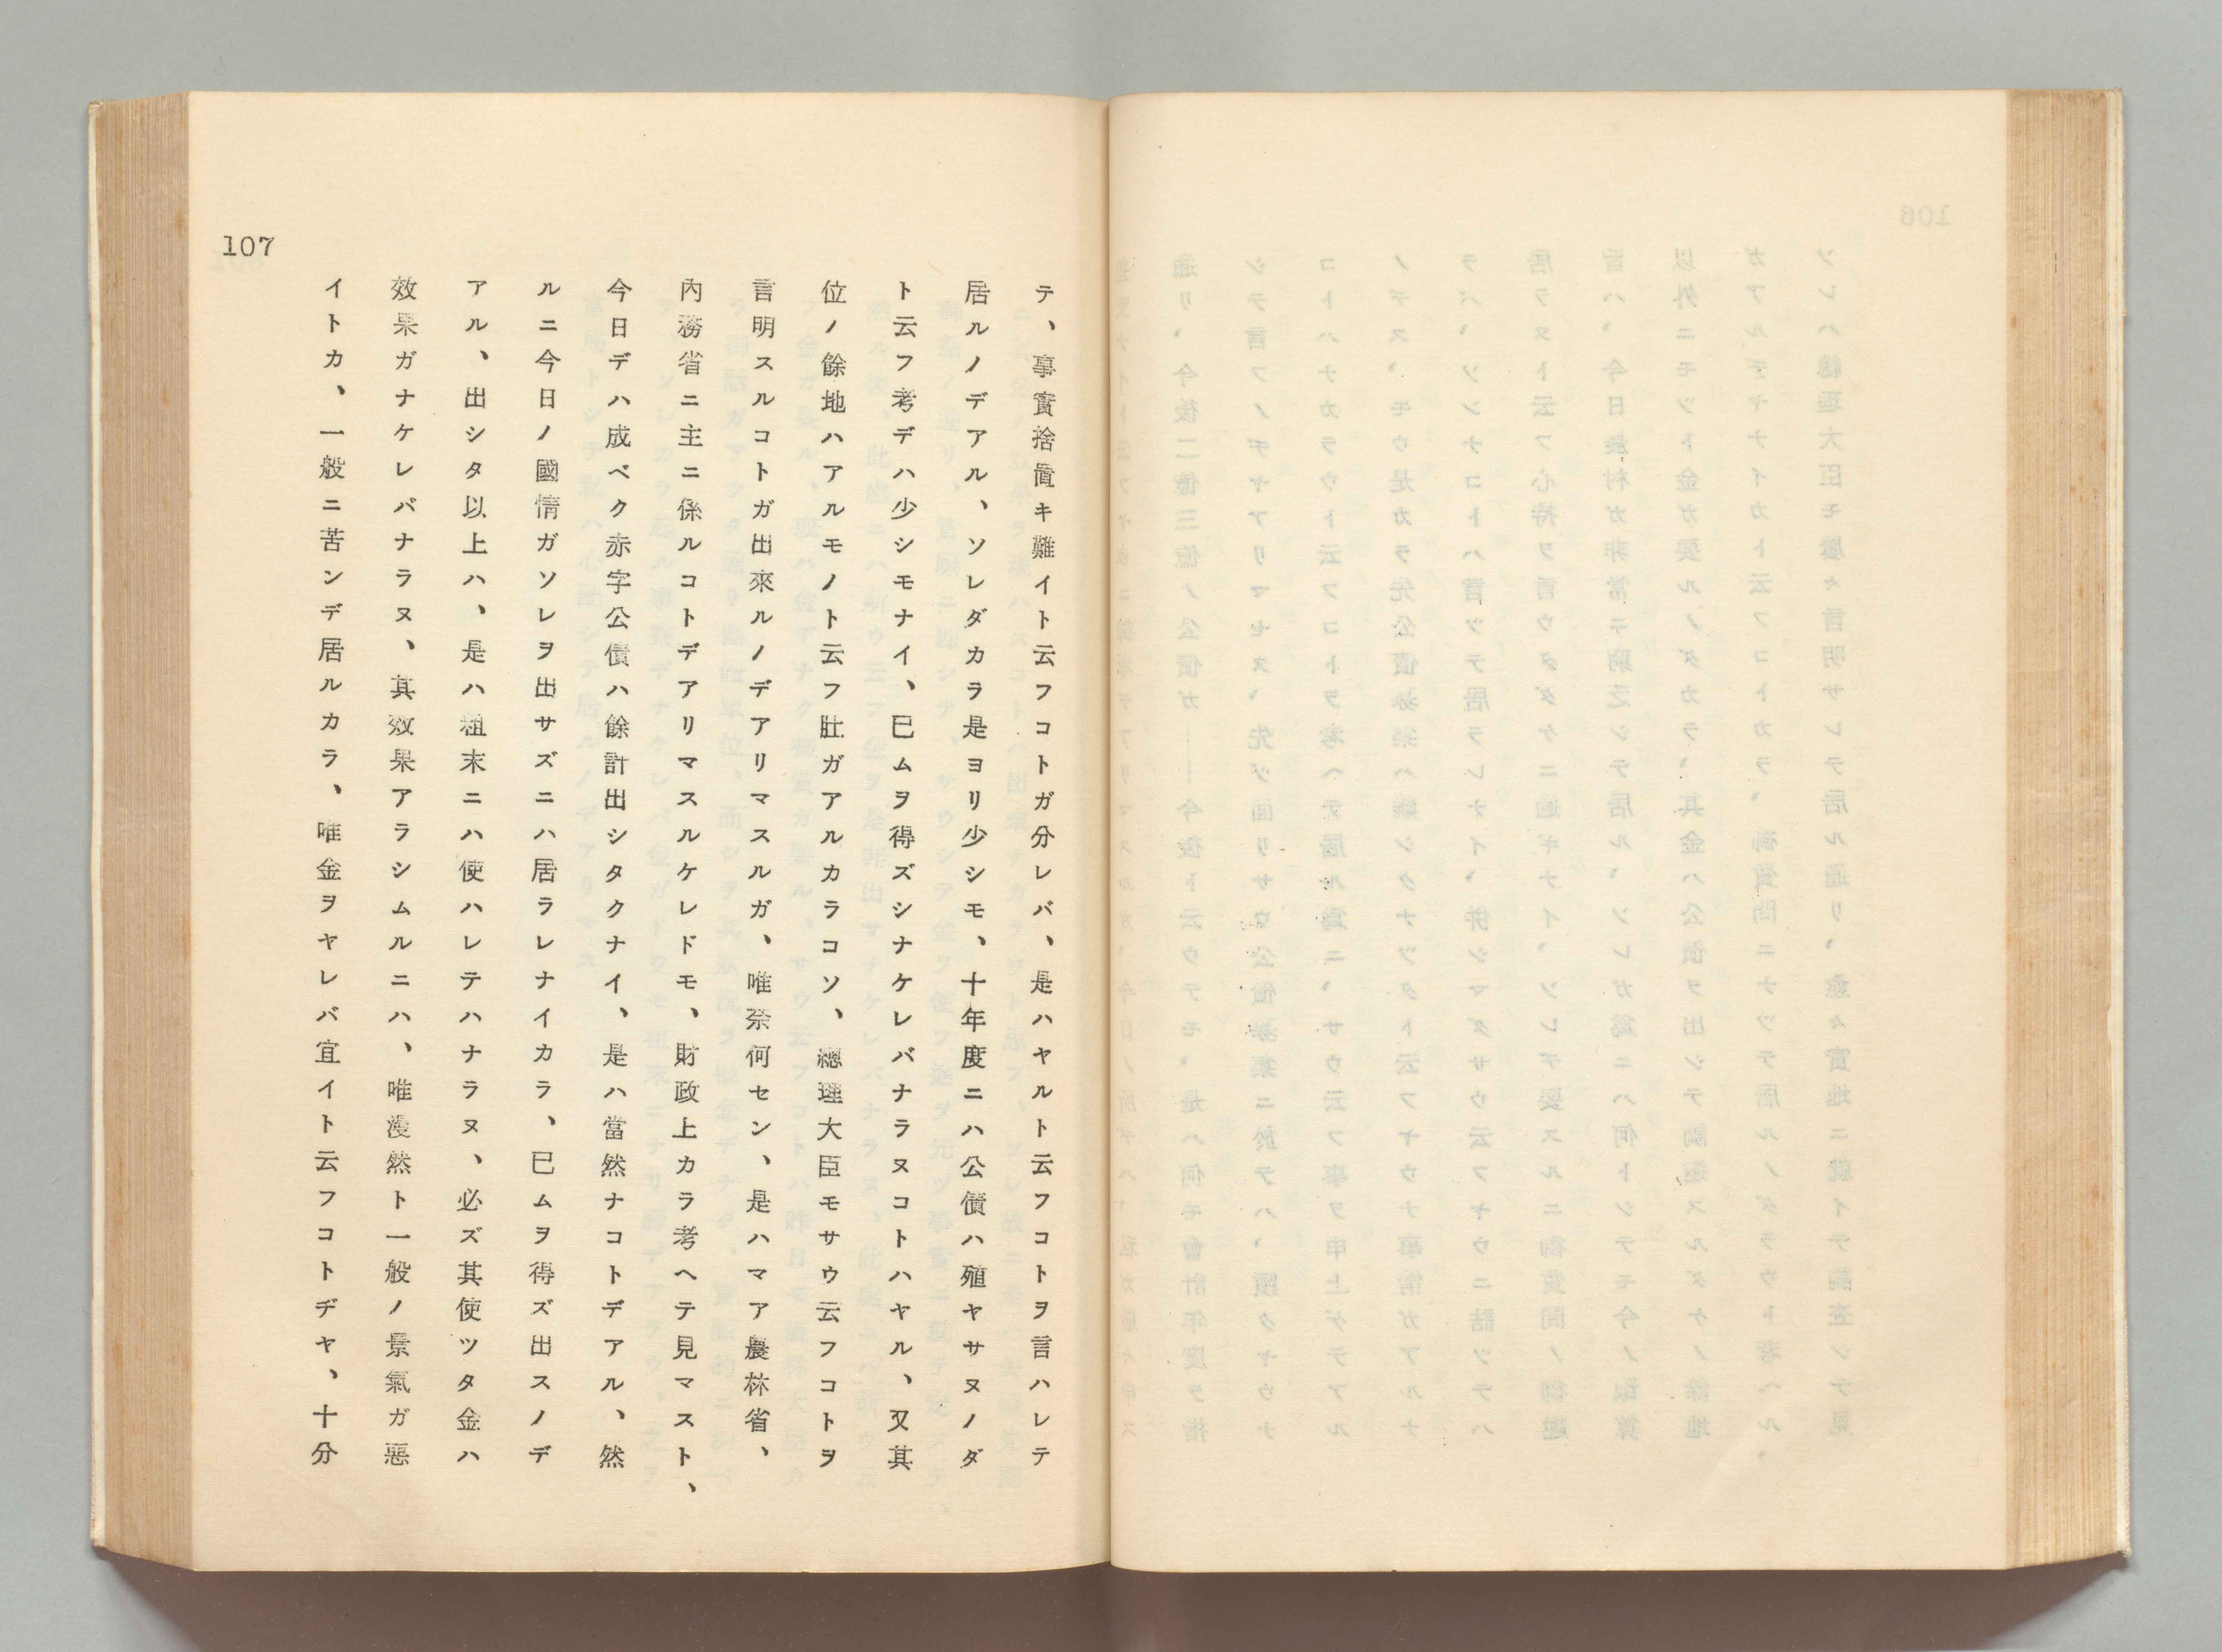 107
テ、事實捨置キ難イト云フコトガ分レバ、是ハヤルト云フコトヲ言ハレテ
居ルノデアル、ソレダカラ是ヨリ少シモ、十年度ニハ公債ハ殖ヤサヌノダ
ト云フ考デハ少シモナイ、已ムヲ得ズシナケレバナラヌコトハヤル、又其
位ノ餘地ハアルモノト云フ肚ガアルカラコソ、總理大臣モサウ云フコトヲ
言明スルコトガ出來ルノデアリマスルガ、唯奈何セン、是ハマア農林省、
內務省ニ主ニ係ルコトデアリマスルケレドモ、財政上カラ考ヘテ見マスト、
今日デハ成ベク赤字公債ハ餘計出シタクナイ、是ハ當然ナコトデアル、然
ルニ今日ノ國情ガソレヲ出サズニハ居ラレナイカラ、已ムヲ得ズ出スノデ
アル、出シタ以上ハ、是ハ粗末ニハ使ハレテハナラヌ、必ズ其使ツタ金ハ
效果ガナケレバナラヌ、其效果アラシムルニハ、唯漫然ト一般ノ景氣ガ惡
イトカ、一般ニ苦ンデ居ルカラ、唯金ヲヤレバ宜イト云フコトヂヤ、十分